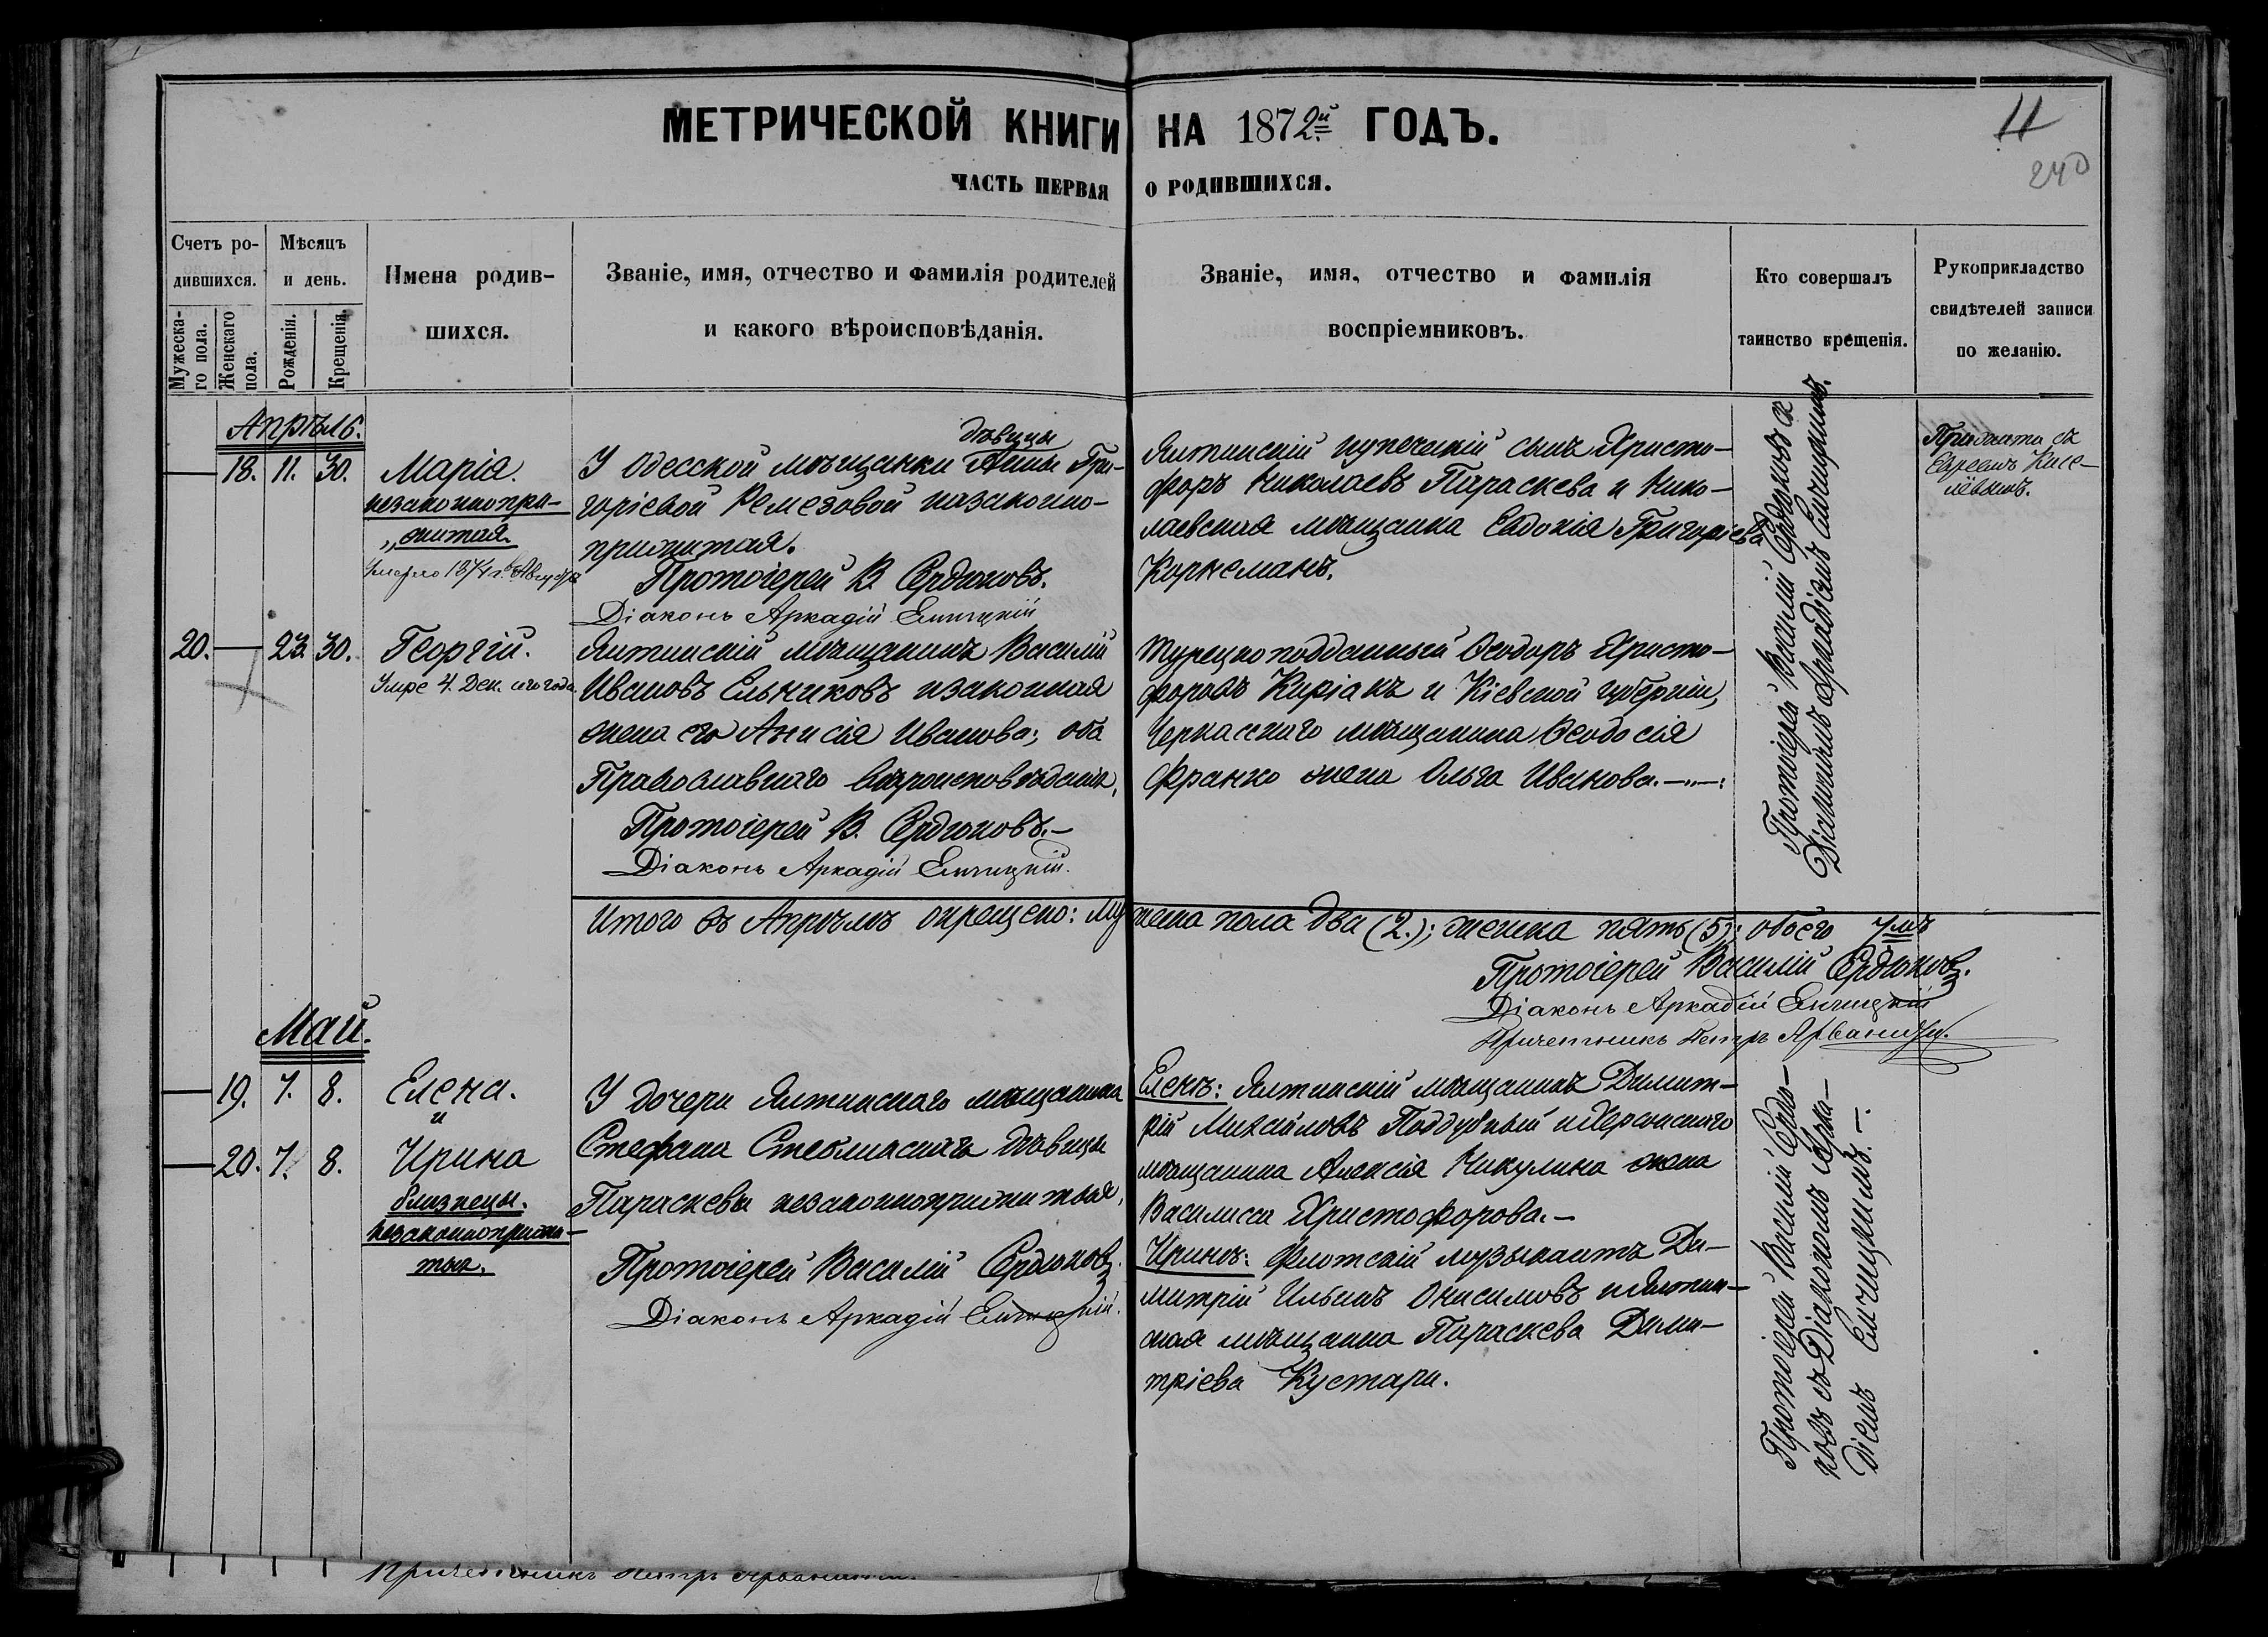 МЕТРИЧЕСКОЙ КНИГИ НА 1872й ГОДЪ.
11
240
ЧАСТЬ ПЕРВАЯ О РОДИВШИХСЯ.
Счетъ ро-
дившихся.
Мужеска-
го пола.
Женскаго
пола.
Мѣсяцъ
и день.
Рожденія.
Крещенія.
Имена родив-
шихся.
Званіе, имя, отчество и фамилія родителей
и какого вѣроисповѣданія.
Званіе, имя, отчество и фамилія
воспріемниковъ.
Кто совершалъ
таинство крещенія.
Рукоприкладство
свидѣтелей записи
по желанію.
Апрѣль.
— 18. 11. 30.
Марія.
незаконнопри-
житая
дѣвицы
У Одесской мѣщанки Анны Гри-
горіевой Ремезовой незаконно-
прижитая.
Протоіерей В. Сердюковъ.
Діаконъ Аркадій Енчицкій
Ялтинскій купеческій сынъ Христо-
форъ Николаевъ Параскева и Нико-
лаевская мѣщанка Евдокія Григоріева
Коркеманъ.
Протоіерей Василій Сердюковъ съ
Діакономъ Аркадіемъ Енчицкимъ.
20. — 23. 30.
Георгій.
Умре 4. Дек. сего года.
Ялтинскій мѣщанинъ Василій
Ивановъ Ельниковъ и законная
жена его Анисія Иванова; оба
Православнаго вѣроисповѣданія.
Протоіерей В. Сердюковъ.—
Діаконъ Аркадій Енчицкій.
Турецкоподданный Ѳеодоръ Христо-
форовъ Киріакъ и Кіевской губерніи,
Черкасскаго мѣщанина Ѳеодосія
Франко жена Ольга Иванова.—
Итого въ Апрѣлѣ окрещено: мужеска пола два (2.); женска пять (5); обоего 7мь
Протоіерей Василій Сердюковъ.
Діаконъ Аркадій Енчицкій
Причетникъ Петръ
Май.
— 19. 7. 8.
Елена.
и
— 20. 7. 8.
Ирина
близнецы.
незаконноприжи-
тыя.
У дочери Ялтинскаго мѣщанина
Стефана дѣвицы
Параскевы незаконноприжитыя.
Протоіерей Василій Сердюковъ.
Діаконъ Аркадій Енчицкій.
Еленѣ: Ялтинскій мѣщанинъ Димит-
рій Михайловъ Поддубный и Херсонскаго
мѣщанина Алексія Никулина жена
Василисса Христофорова.—
Иринѣ: Флотскій музыкантъ Ди-
митрій Ильинъ Онисимовъ и Ялтин-
ская мѣщанка Параскева Дими-
тріева Кустари.
Протоіерей Василій Сердю-
ковъ съ Діакономъ Арка-
діемъ Енчицкимъ.—
Причетникъ Петръ